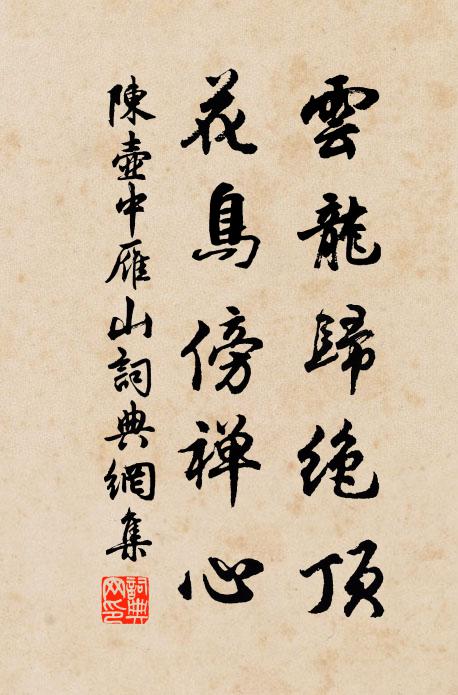 雲龍歸絶頂
花鳥傍禅心
陳壺中雁山詞典網集
詞典網印